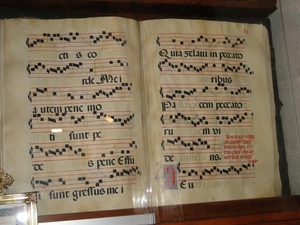 cti s co
rde Me i
autem pene mo
ti sunt pe
de s pene Effu
sunt gressus me i
Quia zelavi in peccato
ribus
Pa cem peccato
ru m vi
de ns.
E u